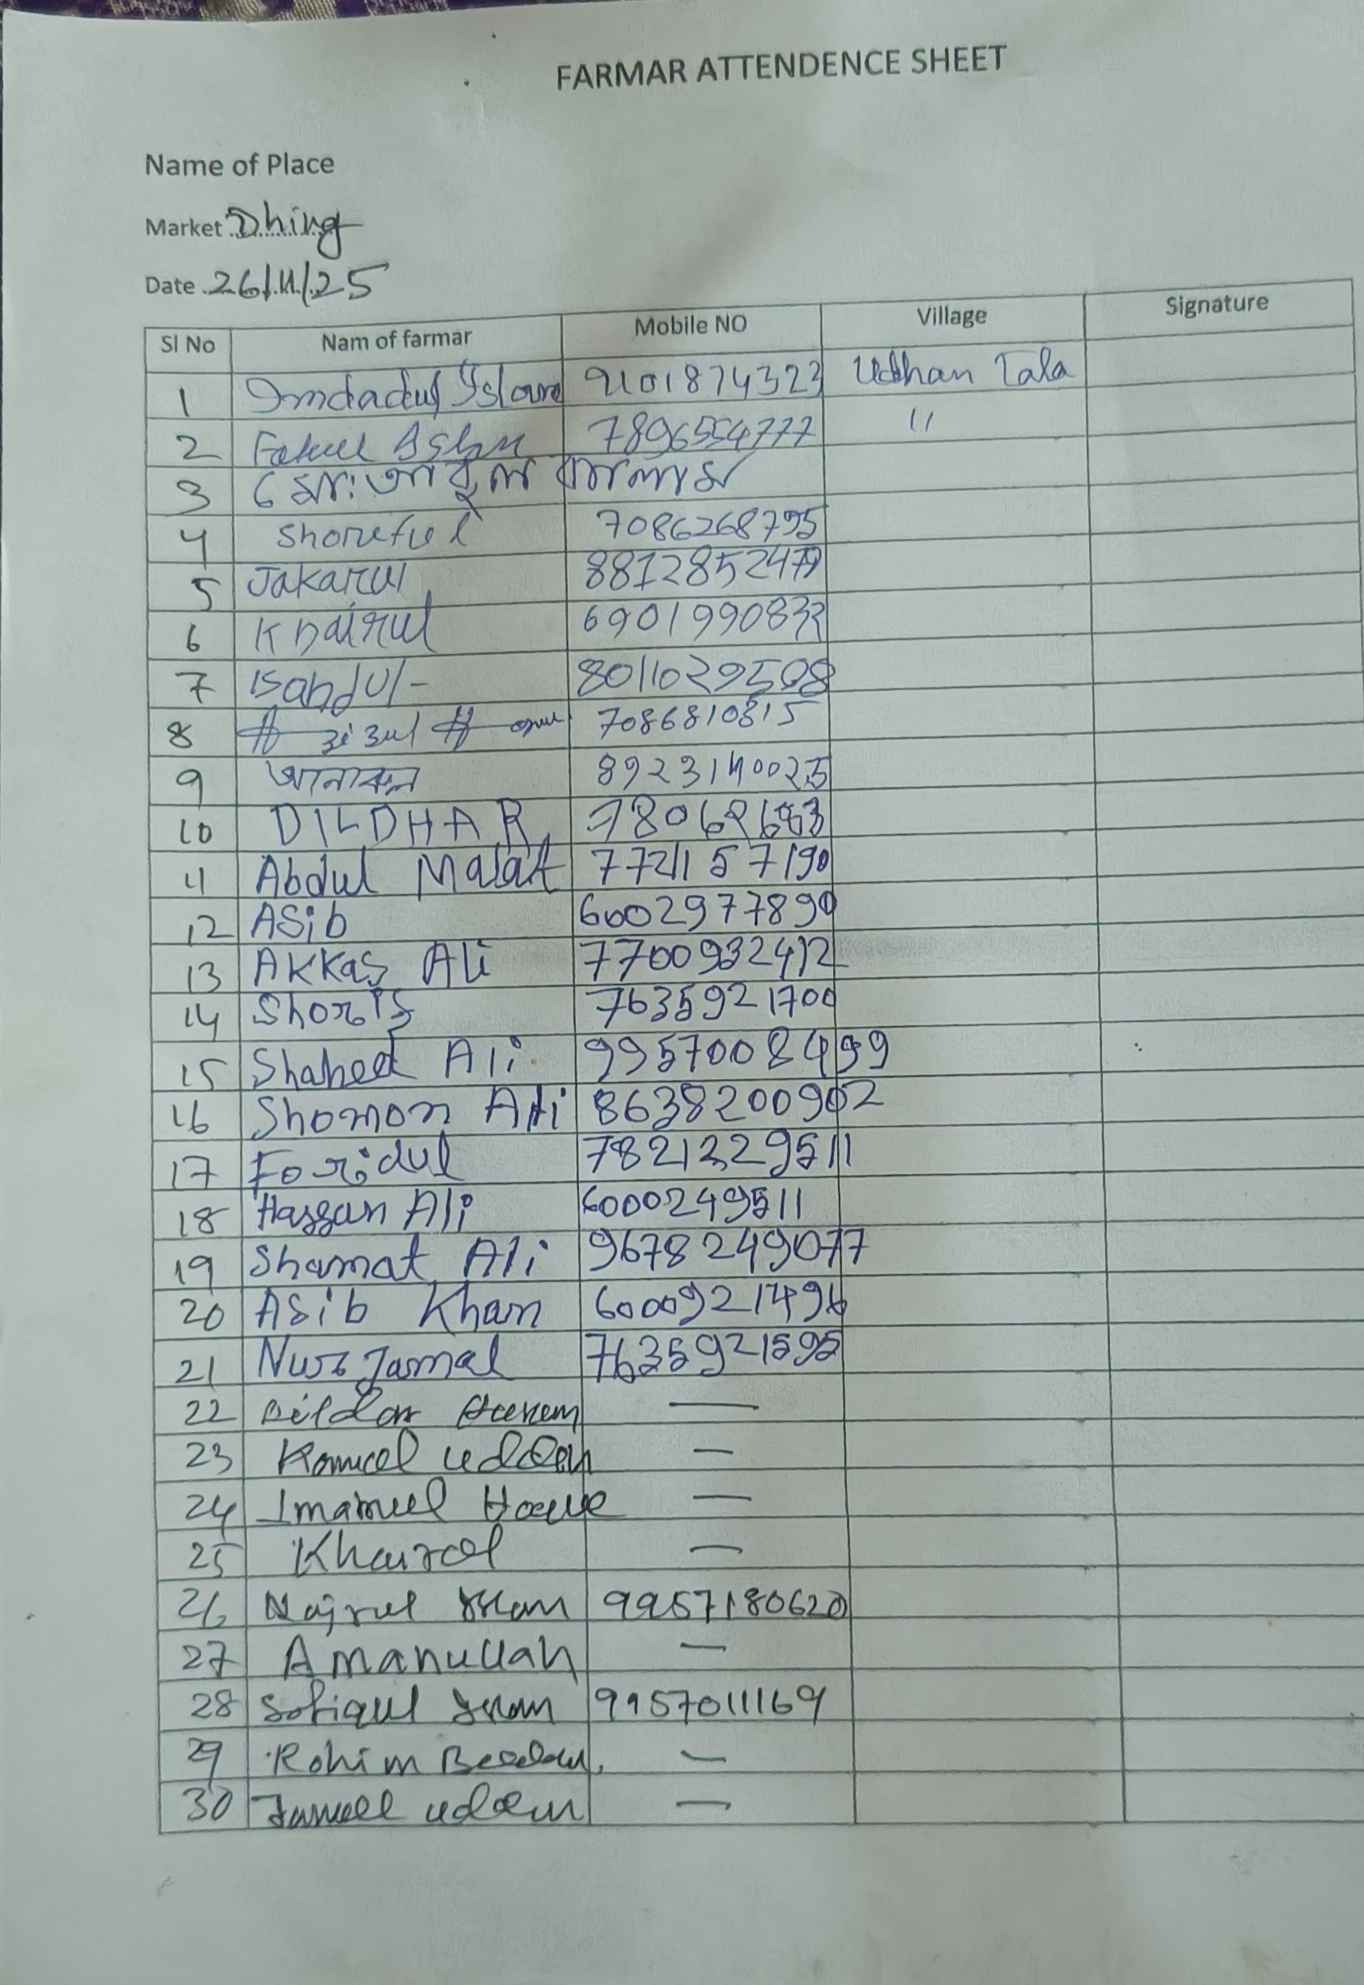 FARMAR ATTENDENCE SHEET
Name of Place
Market Dhing
Date 26/11/25
Sl No Nam of farmar Mobile NO Village Signature
1 Imdadul Islam 9101874323 Udhan Tala
2 7896554777 "
3
4 Shoreful 7086268795
5 Jakarul 8812852479
6 Khairul 6901990833
7 8011029508
8 7086810815
9 8923140025
10 DILDHAR
11 Abdul Malak 7721157190
12 ASib 6002977890
13 AKKAS Ali 7700932412
14 7635921700
15 Shahed Ali 9957008499
16 Shomon Ali 8638200902
17 Foridul 7821329511
18 Hassan Ali 6000249511
19 Shamat Ali 9678249077
20 ASib Khan 6000921496
21 Nur Jamal 7635921595
22 Dildar —
23 uddin —
24 Imamul Hoque —
25 Khairol —
26 Najrul Islam 9957180620
27 Amanullah —
28 Sofiqul Islam 9957011169
29 Rohim —
30 uddin —